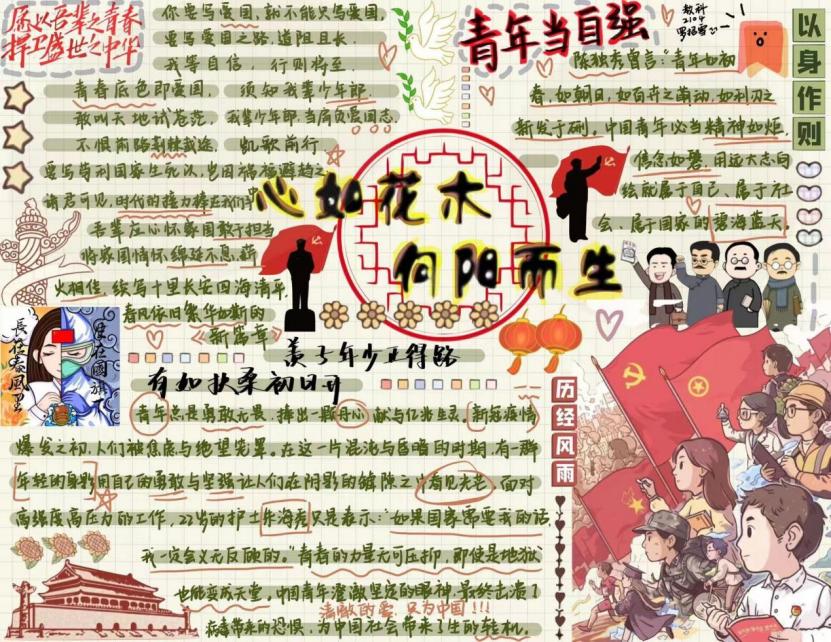 愿以吾辈之青春
捍卫盛世之中华
你要写爱国,就不能只写爱国,
要写爱国之路,道阻且长,
我等自信,行则将至.
青春底色即爱国,须知我辈少年郎.
敢叫天地试苍茫,我辈少年郎,当肩负爱国志,
不惧前路荆棘载途,凯歌前行.
要写苟利国家生死以,岂因祸福避趋之
诸君可见,时代的接力棒在我们手中
吾辈在心怀家国敢于担当
将家国情怀绵延不息,薪
火相传,续写十里长安四海清平.
春风依旧繁华如斯的
《新篇章》
青年当自强
教科
2104
以身作则
陈独秀曾言:“青年如初
春,如朝日,如百卉之萌动,如利刃之
新发于硎。中国青年必当精神如炬,
信念如磐,用远大志向
绘就属于自己、属于社
会、属于国家的碧海蓝天。
心如花木
向阳而生
長在春風里
生在國旗
羡子年少正得路
有如扶桑初日升
历经风雨
青年总是勇敢无畏,捧出一颗丹心,献与亿兆生灵。新冠疫情
爆发之初,人们被焦虑与绝望笼罩。在这一片混沌与昏暗的时期,有一群
年轻的身影用自己的勇敢与坚强让人们在阴影的缝隙之中看见光芒,面对
高强度高压力的工作,22岁的护士朱海秀只是表示:“如果国家需要我的话,
我一定会义无反顾的。”青春的力量无可压抑,即使是地狱
也能变成天堂,中国青年澄澈坚定的眼神,最终击溃了
清澈的爱,只为中国!!!
病毒带来的恐惧,为中国社会带来了生的转机.